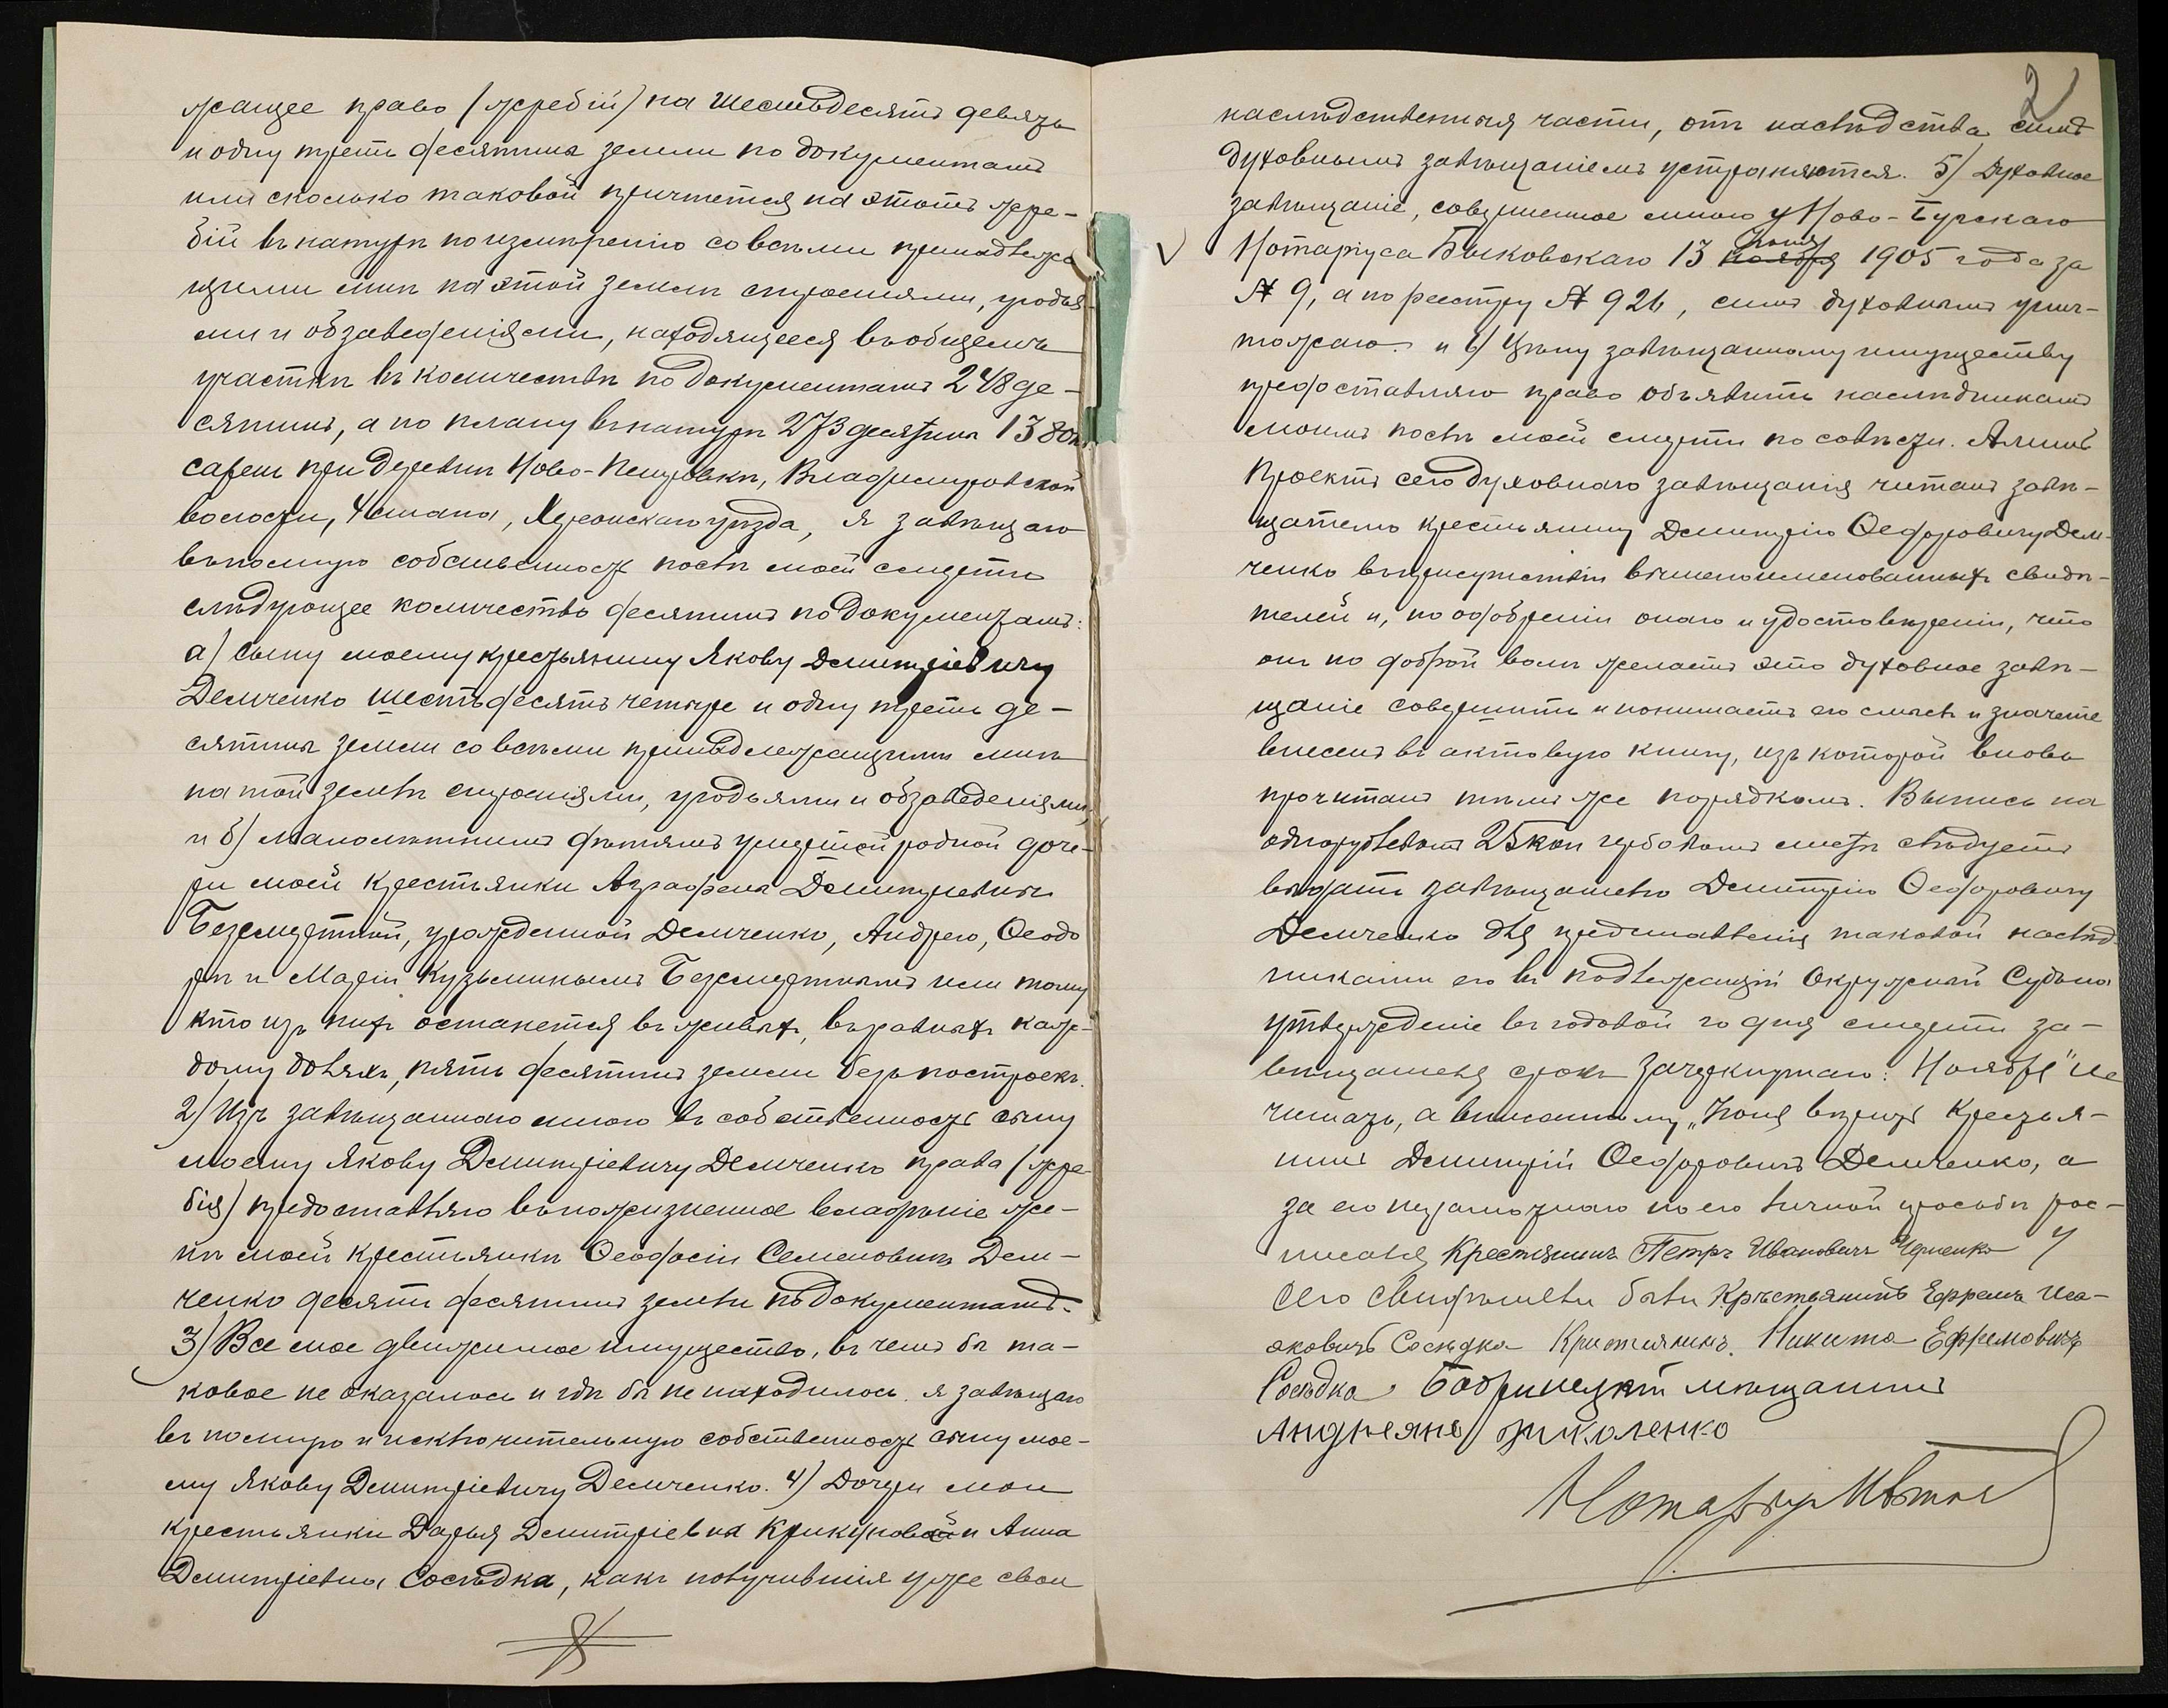 жащее право (жребій) на шестьдесятъ девять
и одну треть десятины земли по документамъ
или сколько таковой причтется на этотъ жре-
бій въ натурѣ по измѣренію со всѣми принадлежа
щими мнѣ на этой землѣ строеніями, угодья
ми и обзаведеніями, находящееся въ общемъ
участкѣ въ количествѣ по документамъ 248 де-
сятинъ, а по плану въ натурѣ 273 десятины 1380
сажень при деревнѣ Ново-Петровкѣ, Владимировской
волости, 4 стана, Херсонскаго уѣзда, я завѣщаю
въ полную собственность послѣ моей смерти
слѣдующее количество десятинъ по документамъ:
а) сыну моему крестьянину Якову Дмитріевичу
Демченко шестьдесятъ четыре и одну треть де-
сятины земли со всѣми принадлежащими мнѣ
на той землѣ строеніями, угодьями и обзаведеніями,
и б) малолѣтнимъ дѣтямъ умершей родной доче-
ри моей крестьянки Аграфены Дмитріевны
Безсмертной, урожденной Демченко, Андрею, Ѳеодо
рѣ и Маріи Кузьминымъ Безсмертнымъ или тому
кто изъ нихъ останется въ живыхъ, въ равныхъ каж-
дому доляхъ, пять десятинъ земли безъ построекъ.
2) Изъ завѣщаннаго мною въ собственность сыну
моему Якову Дмитріевичу Демченко права (жре-
бія) предоставляю въ пожизненное владѣніе же-
нѣ моей крестьянкѣ Ѳеодосіи Семеновнѣ Дем-
ченко десять десятинъ земли по документамъ.
3) Все мое движимое имущество, въ чемъ бы та-
ковое не оказалось и гдѣ бы не находилось я завѣщаю
въ полную и исключительную собственность сыну мое-
му Якову Дмитріевичу Демченко. 4) Дочери мои
крестьянки Дарья Дмитріевна Крикуновой и Анна
Дмитріевна Сосѣдка, какъ получившія уже свои
2
наслѣдственныя части, отъ наслѣдства симъ
духовнымъ завѣщаніемъ устраняются. 5) Духовное
завѣщаніе, совершенное мною у Ново-Бугскаго
Іюня
Нотаріуса Быковскаго 13 ноября 1905 года за
№ 9, а по реестру № 926, симъ духовнымъ унич-
тожаю. и 6) Цѣну завѣщанному имуществу
предоставляю право объявить наслѣдникамъ
моимъ послѣ моей смерти по совѣсти. Аминь
Проектъ сего духовнаго завѣщанія читанъ завѣ-
щателю крестьянину Дмитрію Ѳедоровичу Дем-
ченко въ присутствіи вышепоименованныхъ свидѣ-
телей и, по одобреніи онаго и удостовѣреніи, что
онъ по доброй волѣ желаетъ это духовное завѣ-
щаніе совершить и понимаетъ его смыслъ и значеніе
внесенъ въ актовую книгу, изъ которой вновь
прочитанъ тѣмъ же порядкомъ. Выпись на
однорублевомъ 25 коп гербовомъ листѣ слѣдуетъ
выдать завѣщателю Дмитрію Ѳедоровичу
Демченко для представленія таковой наслѣд
никами его въ подлежащій Окружный Судъ на
утвержденіе въ годовой со дня смерти за-
вѣщателя срокъ Зачеркнутаго: Ноября" не
читать, а вписанному „Іюня вѣрить Крестья-
нинъ Дмитрій Ѳедоровичъ Демченко, а
за его неграмотнаго по его личной просьбѣ рос-
писался Крестьянинъ Петръ Ивановичъ Черненко У
сего свидѣтели были Крѣстьянинъ Ефремъ Иса-
аковичъ Сосѣдка Кристиянинъ. Никита Ефремовичъ
Сосѣдка. Бобринецкій мѣщанинъ
Андреянъ Николенко
Нотаріусъ